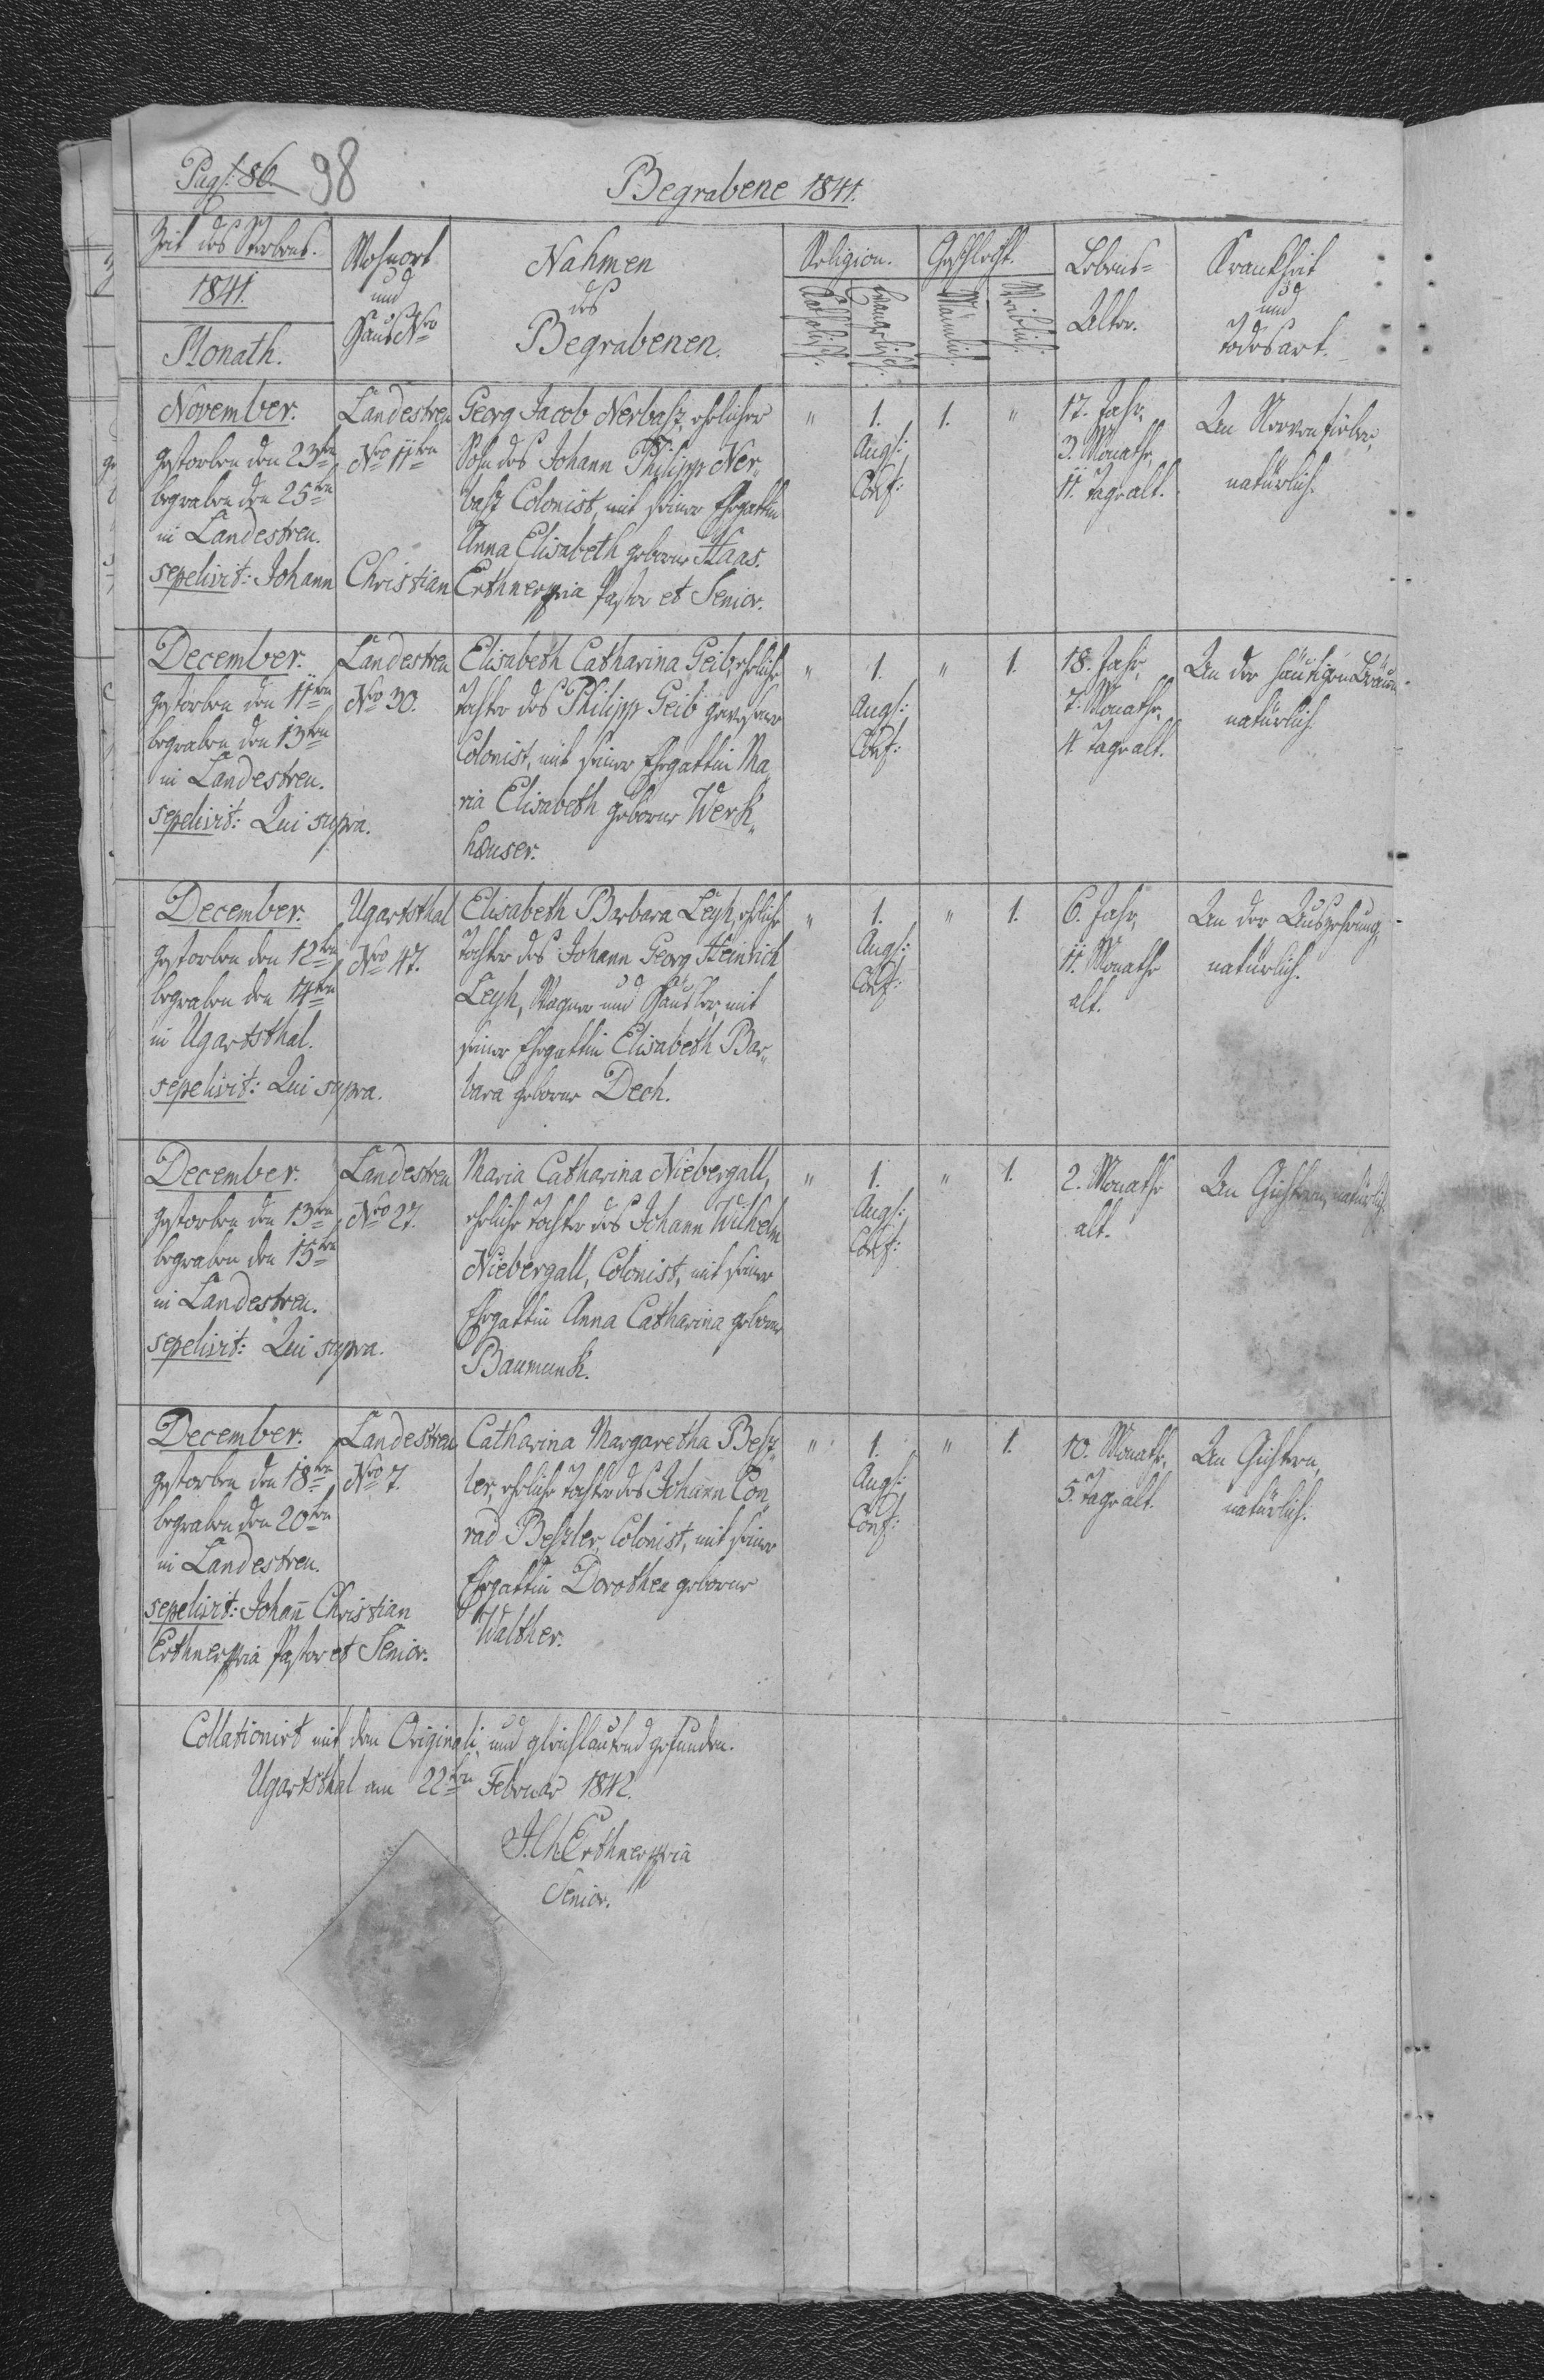 Pag: 86. 98
Begrabene 1841.
Zeit des Sterbens.
1841.
Monath.
Wohnort
und
Haus Nro
Nahmen
des
Begrabenen.
Religion.
Katholisch.
Evangelisch.
Geschlecht.
Mänlich.
Weiblich.
Lebens-
Alter.
Krankheit
und
Todesart.
November.
gestorben den 23ten
begraben den 25ten
in Landestreu.
sepelivit: Johann Christian Erthner ppia Pastor et Senior.
Landestreu
Nro 11ten
Georg Jacob Nerbaß, ehelicher
Sohn des Johann Philipp Ner„
baß Colonist, mit seiner Ehegattin
Anna Elisabeth geborne Haas.
" 1. 1. "
Augs:
Conf:
17. Jahr,
3. Monathe
11. Tage alt.
An Nervenfieber,
natürlich.
December.
gestorben den 11ten
begraben den 13ten
in Landestreu.
sepelivit: Qui supra.
Landestreu
Nro 30.
Elisabeth Catharina Geib, eheliche
Tochter des Philipp Geib gewesener
Colonist, mit seiner Ehegattin Ma„
ria Elisabeth geborne Werk„
hauser.
" 1. " 1.
Augs:
Conf:
18. Jahr,
7. Monathe,
4. Tage alt.
An der häutigen Bräune
natürlich.
December.
gestorben den 12ten
begraben den 14ten
in Ugartsthal.
sepelivit: Qui supra.
Ugartsthal
Nro 47.
Elisabeth Barbara Leyh, eheliche
Tochter des Johann Georg Heinrich
Leyh, Wagner und Häusler, mit
seiner Ehegattin Elisabeth Bar„
bara geborne Dech.
" 1. " 1.
Augs:
Conf:
6. Jahr,
11. Monathe
alt.
An der Auszehrung,
natürlich.
December.
gestorben den 13ten
begraben den 15ten
in Landestreu.
sepelivit: Qui supra.
Landestreu
Nro 27.
Maria Catharina Niebergall,
eheliche Tochter des Johann Wilhelm
Niebergall, Colonist, mit seiner
Ehegattin Anna Catharina geborne
Baumunk.
" 1. " 1.
Augs:
Conf:
2. Monathe
alt.
An Gichtern, natürlich.
December.
gestorben den 18ten
begraben den 20ten
in Landestreu.
sepelivit: Johañ Christian
Erthner ppia Pastor et Senior.
Landestreu
Nro 7.
Catharina Margaretha Beß„
ler, eheliche Tochter des Johann Con„
rad Beßler, Colonist, mit seiner
Ehegattin Dorothea geborne
Walther.
" 1. " 1.
Augs:
Conf:
10. Monathe,
5. Tage alt.
An Gichtern,
natürlich.
Collationirt mit dem Originali, und gleichlautend gefunden.
Ugartsthal am 22ten Februar 1842.
J. Ch. Erthner ppia
Senior.